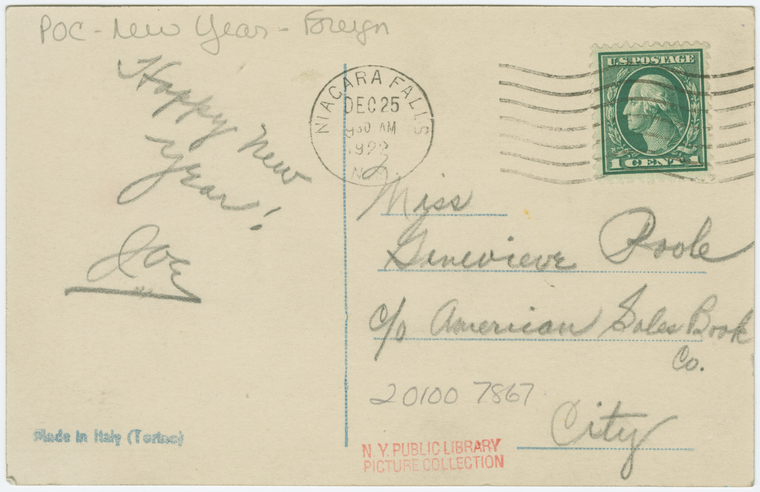 POC - New Year - Foreign
Happy New
Year!
Joe
Made in Italy (Torino)
NIAGARA FALLS
DEC 25
9 30 AM
1922
N.Y.
U.S. POSTAGE
1 CENT 1
Miss
Genevieve Poole
c/o American Sales Book
Co.
City
20100 7867
N.Y. PUBLIC LIBRARY
PICTURE COLLECTION